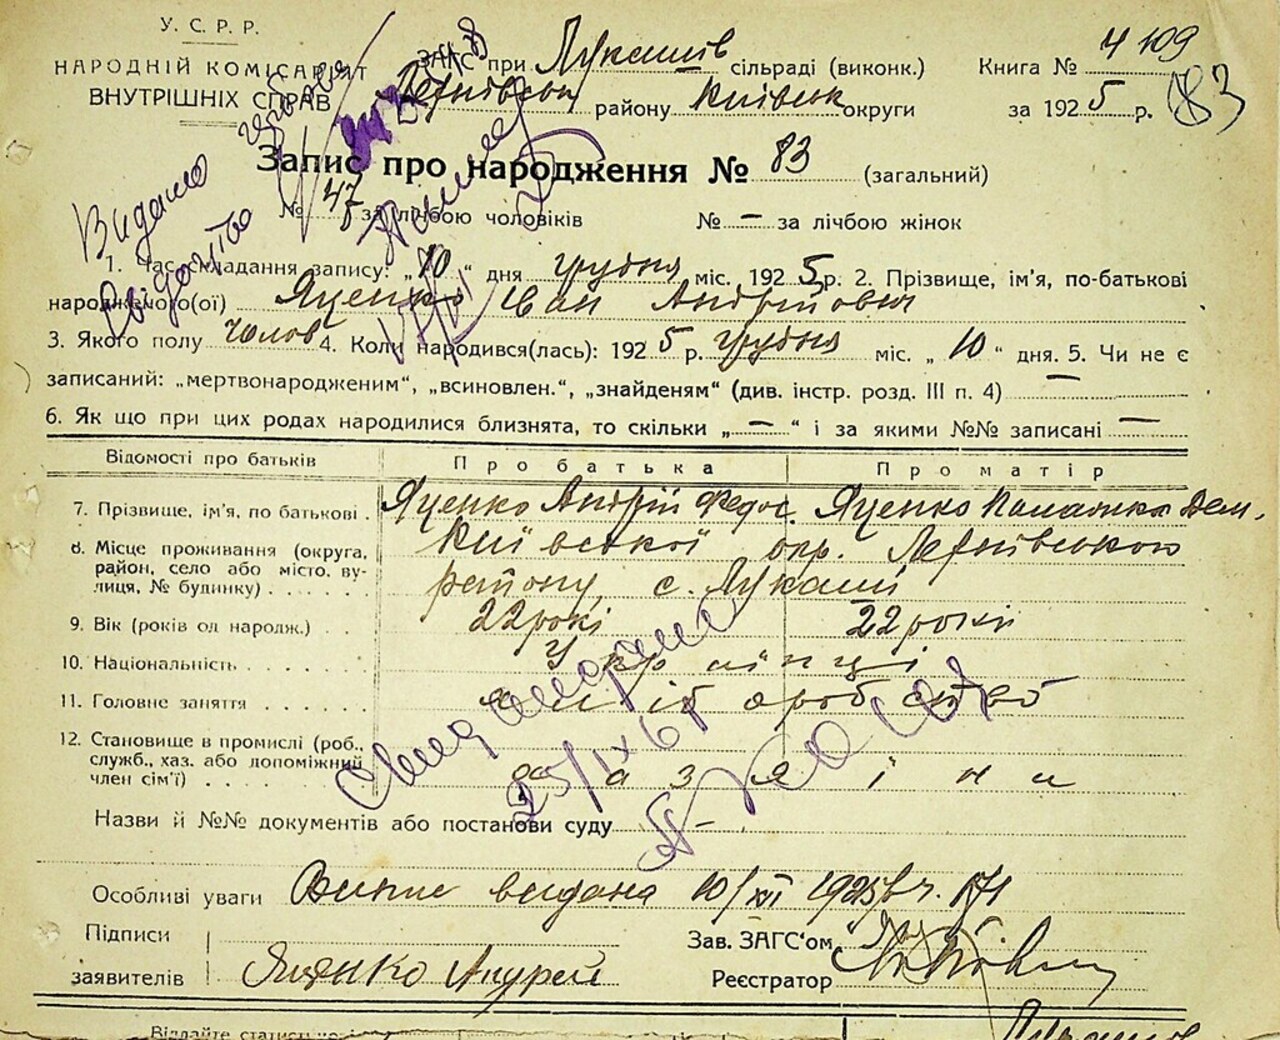 У. С. Р. Р.
НАРОДНІЙ КОМІСАРІЯТ
ВНУТРІШНІХ СПРАВ
ЗАГС при Лукашів сільраді (виконк.) Книга № 4 109
району Київськ округи за 1925 р. 83
Запис про народження № 83 (загальний)
№ 47 за лічбою чоловіків № — за лічбою жінок
Видано
свідоцтво
1. Час складання запису: „10“ дня грудня міс. 1925 р. 2. Прізвище, ім'я, по-батькові
народженого(ої) Яценко Іван Андрійович
3. Якого полу чолов 4. Коли народився(лась): 1925 р. грудня міс. „10“ дня. 5. Чи не є
записаний: „мертвонародженим“, „всиновлен.“, „знайденям“ (див. інстр. розд. III п. 4) —
6. Як що при цих родах народилися близнята, то скільки „—“ і за якими №№ записані —
Відомості про батьків Про батька Про матір
7. Прізвище, ім'я, по батькові. Яценко Андрій Федос. Яценко Дем.
8. Місце проживання (округа, район, село або місто, вулиця, № будинку) Київської окр.
району, с. Лукаші
9. Вік (років од народж.) 22 рокі 22 рокі
10. Національність Українці
11. Головне заняття хліборобство
12. Становище в промислі (роб., служб., хаз. або допоміжний член сім'ї) хазяіни
25/IX 61
Назви й №№ документів або постанови суду —
Особливі уваги видана 10/XII 1925 р. ч. 171
Підписи
заявителів Яценко Андрей
Зав. ЗАГС'ом
Реєстратор